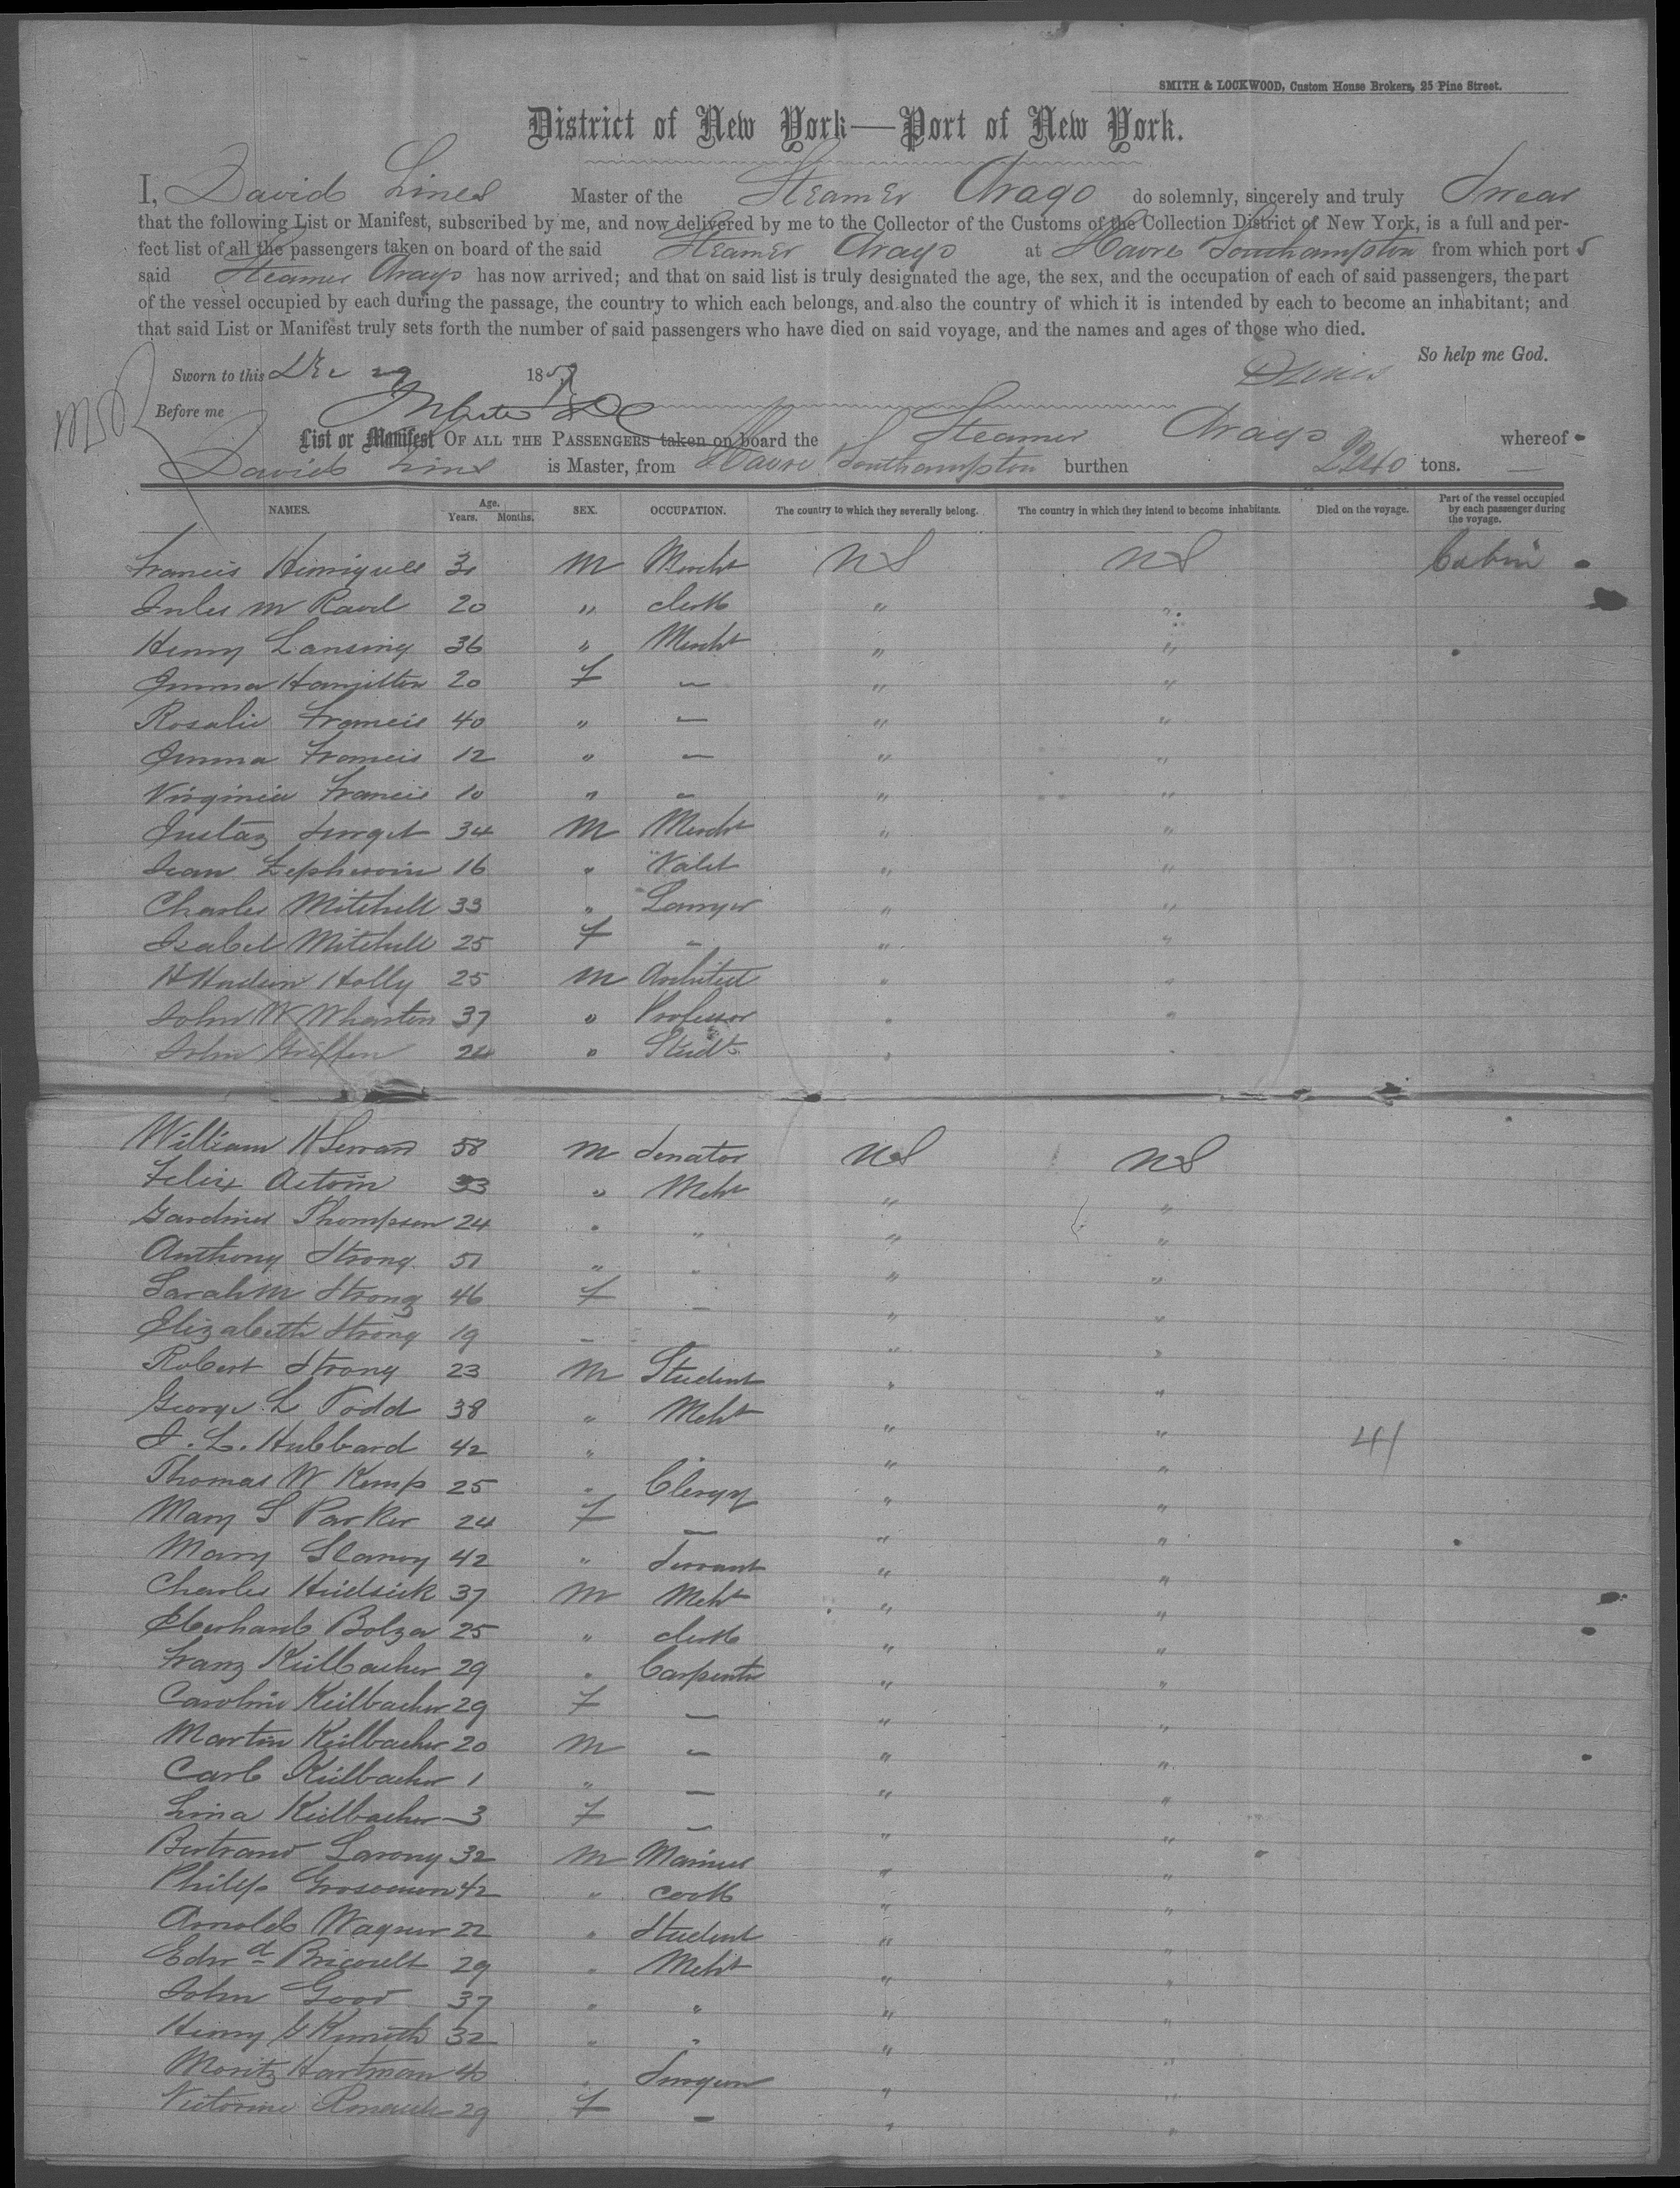 SMITH & LOCKWOOD, Custom House Brokers, 25 Pine Street.
District of New York—Port of New York.
I, David Lines Master of the Steamer Arago do solemnly, sincerely and truly Swear
that the following List or Manifest, subscribed by me, and now delivered by me to the Collector of the Customs of the Collection District of New York, is a full and per-
fect list of all the passengers taken on board of the said Steamer Arago at Havre Southampton from which port s
said Steamer Arago has now arrived; and that on said list is truly designated the age, the sex, and the occupation of each of said passengers, the part
of the vessel occupied by each during the passage, the country to which each belongs, and also the country of which it is intended by each to become an inhabitant; and
that said List or Manifest truly sets forth the number of said passengers who have died on said voyage, and the names and ages of those who died.
So help me God.
Sworn to this Dec 29 1859 D Lines
Before me
List or Manifest OF ALL THE PASSENGERS taken on board the Steamer Arago whereof
David Lines is Master, from Havre Southampton burthen 2240 tons.
NAMES. Age. Years. Months. SEX. OCCUPATION. The country to which they severally belong. The country in which they intend to become inhabitants. Died on the voyage. Part of the vessel occupied by each passenger during the voyage.
Francis Henriques 30 M Mercht US US Cabin
Jules M Ravel 20 " clerk " "
Henry Lansing 36 " Mercht " "
Emma Hamilton 20 F — " "
Rosalie Francis 40 " — " "
Emma Francis 12 " — " "
Virginia Francis 10 " — " "
Gustav Surget 34 M Mercht " "
Jean 16 " Valet " "
Charles Mitchell 33 " Lawyer " "
Isabel Mitchell 25 F — " "
H Hudson Holly 25 M Architect " "
John W Wharton 37 " Professor " "
John Griffen 24 " Studt " "
William H Seward 58 M Senator US US
Felix Aetoin 33 " Mcht " "
Gardner Thompson 24 " " " "
Anthony Strong 51 " " " "
Sarah M Strong 46 F — " "
Elizabeth Strong 19 — " "
Robert Strong 23 M Student " "
George L Todd 38 " Mcht " "
J. L. Hubbard 42 " " " " 41
Thomas W Kemp 25 " Clergy " "
Mary S Parker 24 F — " "
Mary Slancy 42 " Servant " "
Charles Heidsick 37 M Mcht " "
Eberhard Bolza 25 " clerk " "
Franz Keilbacher 29 " Carpenter " "
Caroline Keilbacher 29 F — " "
Martin Keilbacher 20 M — " "
Carl Keilbacher 1 " — " "
Lina Keilbacher 3 F — " "
Bertrand Larony 32 M Mariner " "
Philip 42 " cook " "
Arnold Wagner 22 " Student " "
Edwd Bricoult 29 " Mcht " "
John Good 37 " " " "
Henry 32 " " " "
Moritz Hartman 40 " Surgeon " "
Victorine 29 F — " "